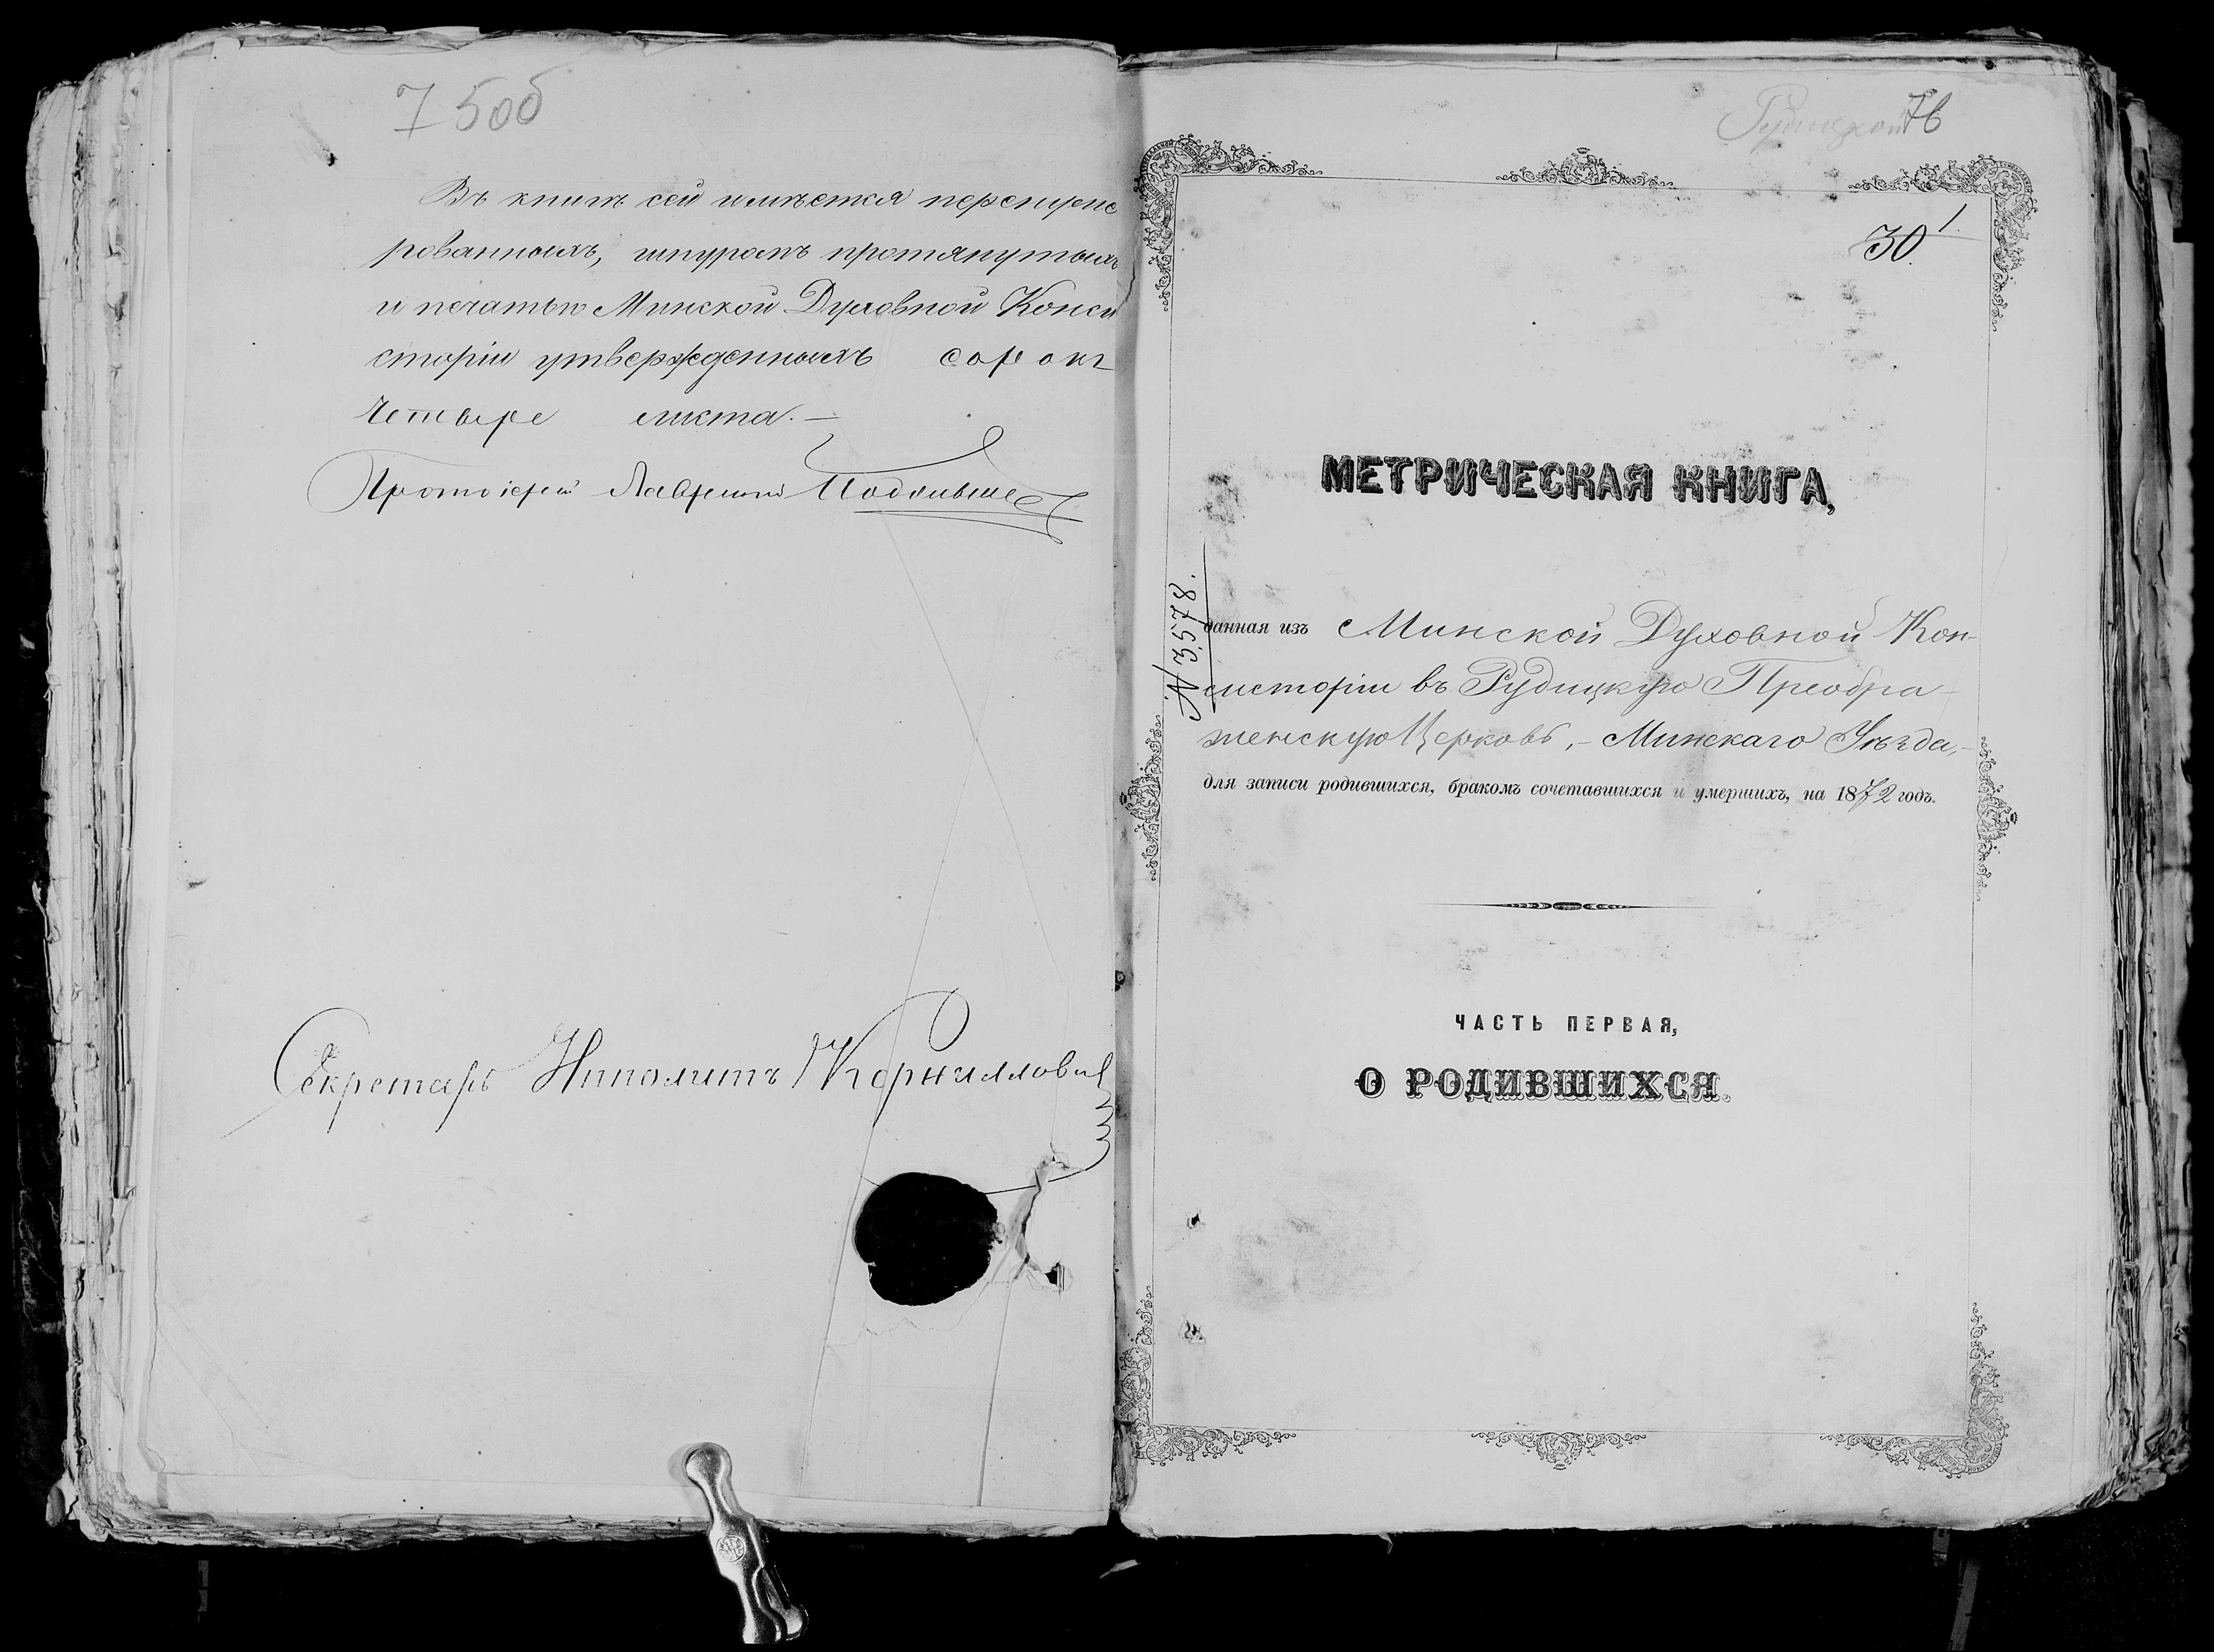 75об
Въ книгѣ сей имѣется перенуме
рованныхъ, шнуромъ протянутыхъ
и печатью Минской Духовной Конси
сторіи утвержденныхъ сорокъ
четыре листа.—
Протоіерей Лаврентій
Секретарь Ипполитъ Корниллович
Рудицкой 76
30 1.
МЕТРИЧЕСКАЯ КНИГА,
№ 3,578.
данная изъ Минской Духовной Кон-
систоріи въ Рудицкую Преобра-
женскую Церковь,- Минскаго Уѣзда,-
для записи родившихся, бракомъ сочетавшихся и умершихъ, на 1872 годъ.
ЧАСТЬ ПЕРВАЯ,
О РОДИВШИХСЯ.